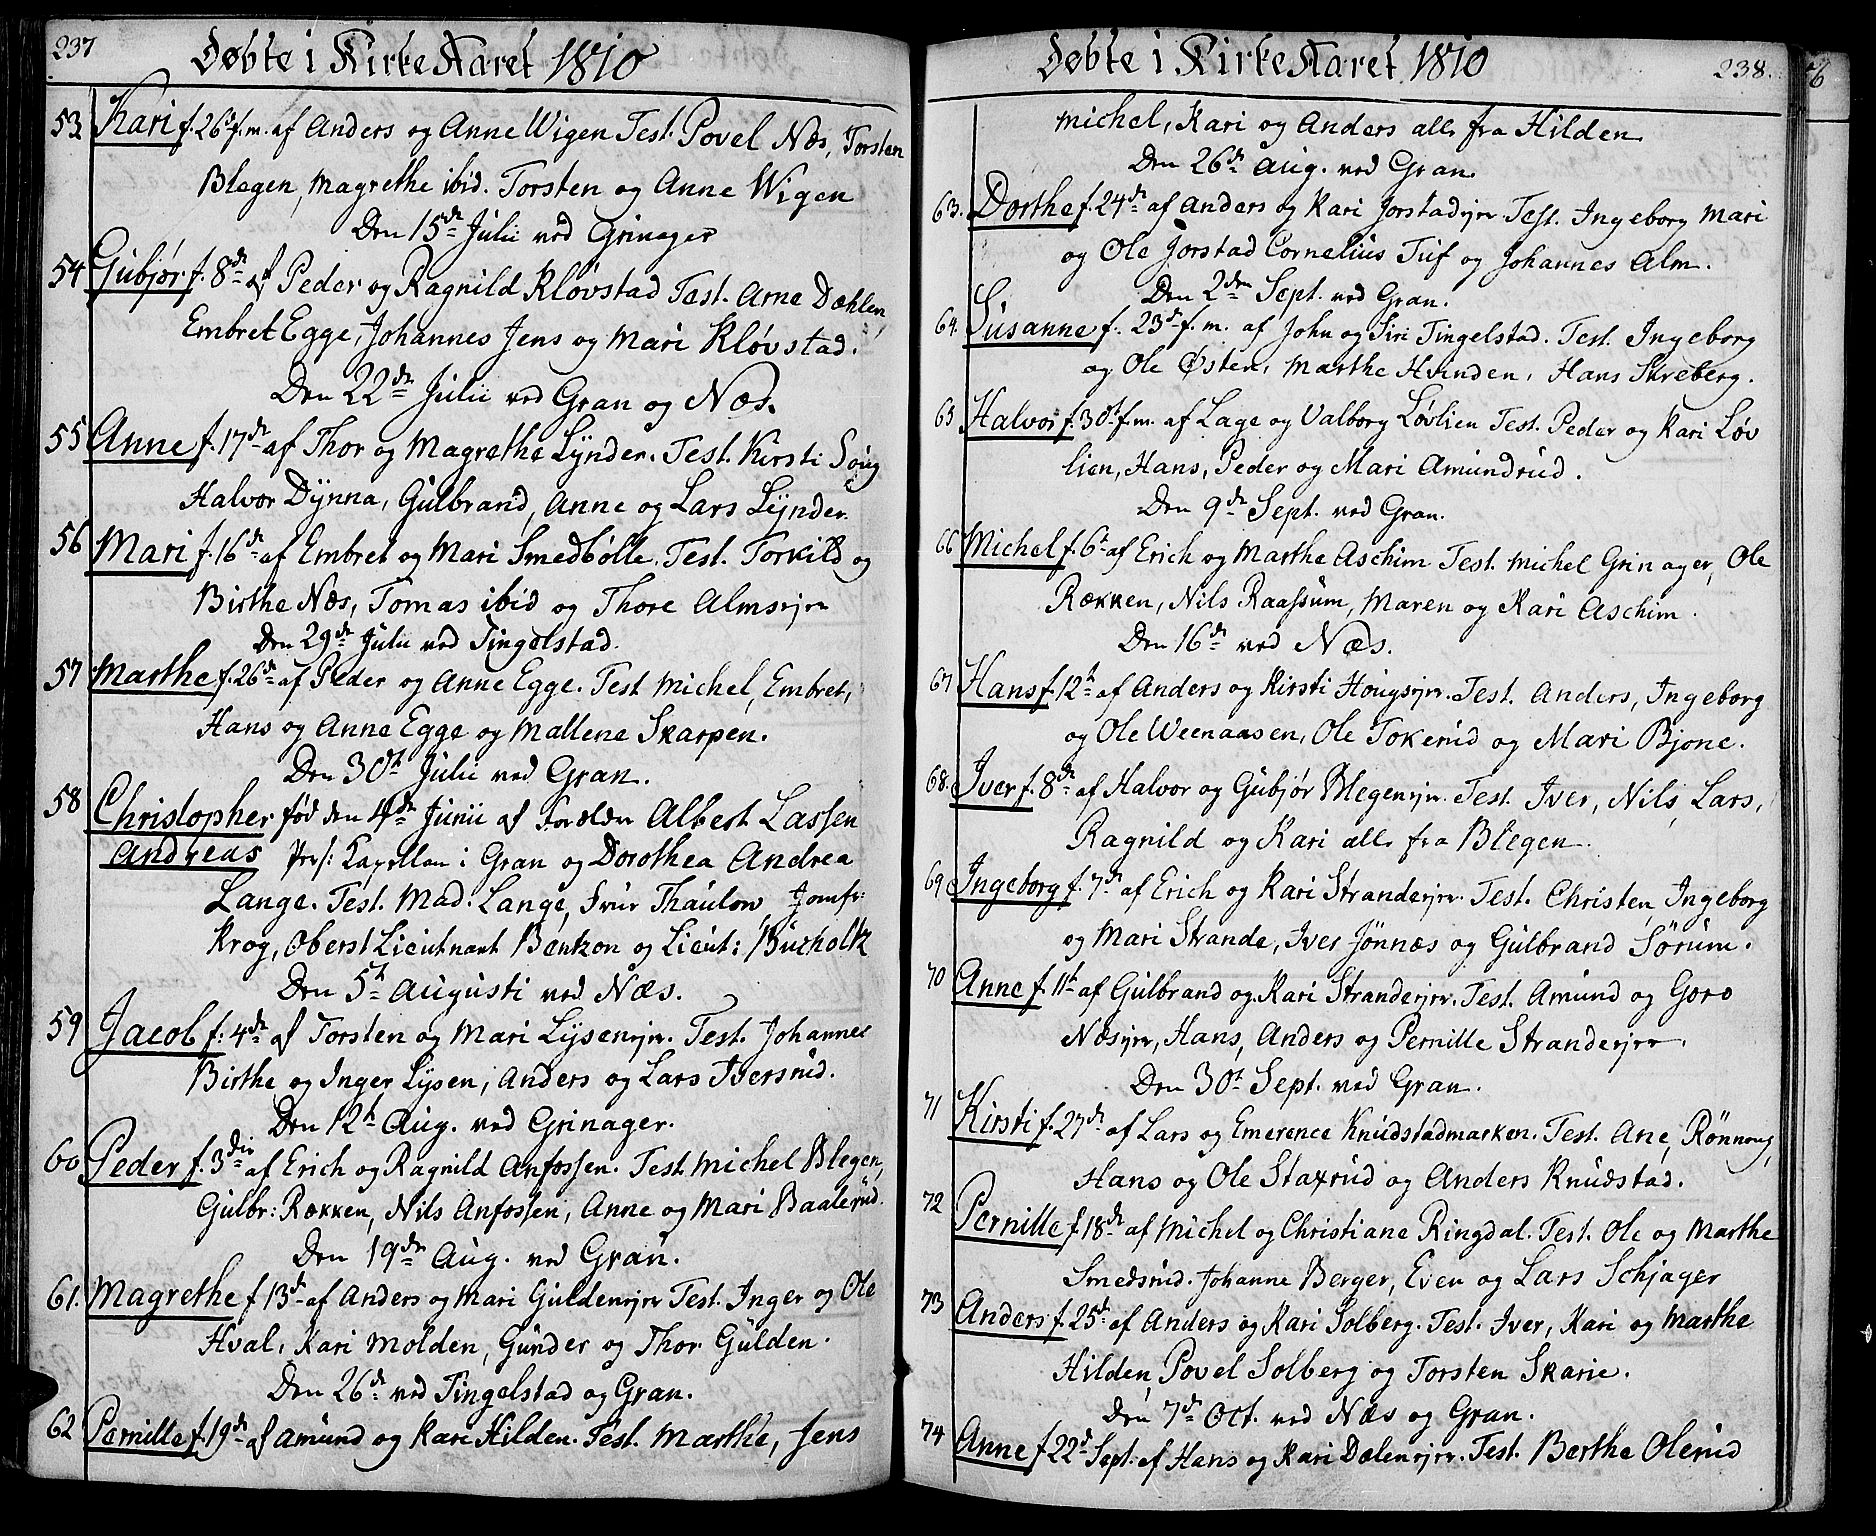 237
Døbte i Kirke Aaret 1810
53 Kari f. 26 f.m. af Anders og Anne Wigen Test. Povel Næs, Torsten
Blegen, Magrethe ibid. Torsten og Anne Wigen
Den 15de Julii ved Grinager
54 Gubjør f. 8de af Peder og Ragnild Kløvstad Test. Arne Dæhlen,
Embret Egge, Johannes Jens og Mari Kløvstad.
Den 22de Julii ved Gran og Næs.
55 Anne f. 17de af Thor og Magrethe Lynder. Test. Kirsti Soug
Halvor Dynna, Gulbrand, Anne og Lars Lynder.
56 Mari f. 16de af Embret og Mari Smedbølle. Test. Torkild og
Birthe Næs, Tomas ibid og Thore Almsejer
Den 29de Julii ved Tingelstad.
57 Marthe f. 26de af Peder og Anne Egge. Test Michel, Embret,
Hans og Anne Egge og Mallene Skarpen.
Den 30t Julii ved Gran.
58 Christopher fød den 4de Junii af Forældre Albert Lassen
Andreas Pers: Capellan i Gran og Dorothea Andrea
Lange. Test. Mad. Lange, Frue Thaulow, Jomfr:
Krog, Oberst Lieutnant Bentzon og Lieut: Bucholtz
Den 5t Augusti ved Næs.
59 Jacob f: 4de af Torsten og Mari Lysenejer. Test. Johannes
Birthe og Inger Lysen, Anders og Lars Iversrud.
Den 12t Aug. ved Grinager.
60 Peder f. 3die af Erich og Ragnild Anfossen. Test. Michel Blegen,
Gulbr: Rækken, Nils Anfossen, Anne og Mari Baalerud.
Den 19de Aug. ved Gran.
61. Magrethe f 13de af Anders og Mari Guldenejer Test. Inger og Ole
Hval, Kari Molden, Gunder og Thor Gulden.
Den 26de ved Tingelstad og Gran.
62 Pernille f. 19de af Amund og Kari Hilden. Test. Marthe, Jens
238.
Døbte i Kirke Aaret 1810
Michel, Kari og Anders alle fra Hilden
Den 26de Aug. ved Gran.
63. Dorthe f. 24de af Anders og Kari Jorstadejer Test. Ingeborg Mari
og Ole Jorstad Cornelius Tuf og Johannes Alm.
Den 2den Sept. ved Gran.
64. Susanne f. 23de f.m. af John og Siri Tingelstad. Test. Ingeborg
og Ole Østen, Marthe Hvinden, Hans Skreberg.
65 Halvor f. 30t f.m. af Lage og Valborg Løvlien Test. Peder og Kari Løv
lien, Hans, Peder og Mari Amundrud.
Den 9de Sept. ved Gran.
66 Michel f. 6t af Erich og Marthe Aschim Test. Michel Grinager, Ole
Rækken, Nils Raassum, Maren og Kari Aschim.
Den 16de ved Næs.
67 Hans f. 12t af Anders og Kirsti Hougsejer. Test. Anders, Ingeborg
og Ole Weenaasen, Ole Tokerud og Mari Bjone.
68. Iver f. 8de af Halvor og Gubjør Blegenejer. Test. Iver, Nils, Lars,
Ragnild og Kari alle fra Blegen.
69 Ingeborg f. 7de af Erich og Kari Strandejer. Test. Christen, Ingeborg
og Mari Strande, Iver Jønnæs og Gulbrand Sørum.
70 Anne f. 11t af Gulbrand og Kari Strandejer. Test. Amund og Goro
Næsejer, Hans, Anders og Pernille Strandejer.
Den 30t Sept. ved Gran.
71 Kirsti f. 27de af Lars og Emerence Knudstadmarken. Test. Ane, Rønnoug,
Hans og Ole Staxrud og Anders Knudstad.
72 Pernille f 18de af Michel og Christiane Ringdal. Test. Ole og Marthe
Smedsrud. Johanne Berger, Even og Lars Schjager
73 Anders f. 25de af Anders og Kari Solberg. Test. Iver, Kari og Marthe
Hilden, Povel Solberg og Torsten Skarie.
Den 7de Oct. ved Næs og Gran.
74 Anne f 22de Sept. af Hans og Kari Dælenejer. Test. Berthe Olerud